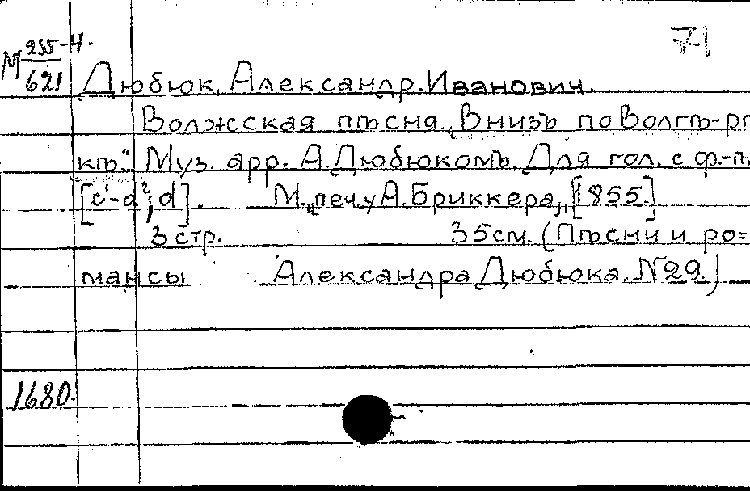 71
М 255-Н.
621
Дюбюк, Александр Иванович.
Волжская пѣсня „Внизъ по Волгѣ-рѣ
кѣ." Муз. арр. А. Дюбюкомъ. Для гол. с ф-п.
[c¹-a², d]. М. „печ. у А. Бриккера„ [1855.]
3 стр. 35см. (Пѣсни и ро=
мансы Александра Дюбюка. №29.)
1680.